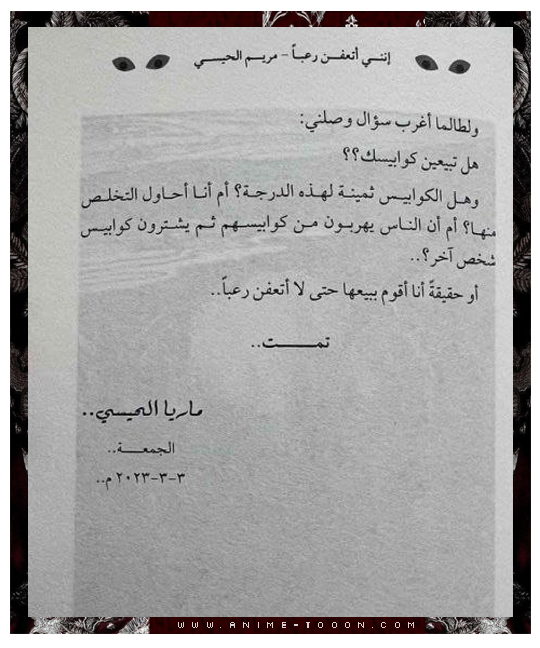 إنني أتعفن رعباً - مريم الحيسي
ولطالما أغرب سؤال وصلني:
هل تبيعين كوابيسك؟؟
وهل الكوابيس ثمينة لهذه الدرجة؟ أم أنا أحاول التخلص
منها؟ أم أن الناس يهربون من كوابيسهم ثم يشترون كوابيس
شخص آخر؟..
أو حقيقةً أنا أقوم ببيعها حتى لا أتعفن رعباً..
تمت..
ماريا الحيسي..
الجمعة..
٣-٣-٢٠٢٣ م..
WWW.ANIME-TOOON.COM